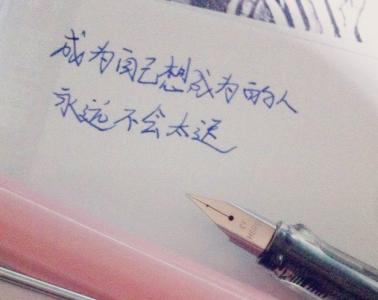 成为自己想成为的人
永远不会太迟